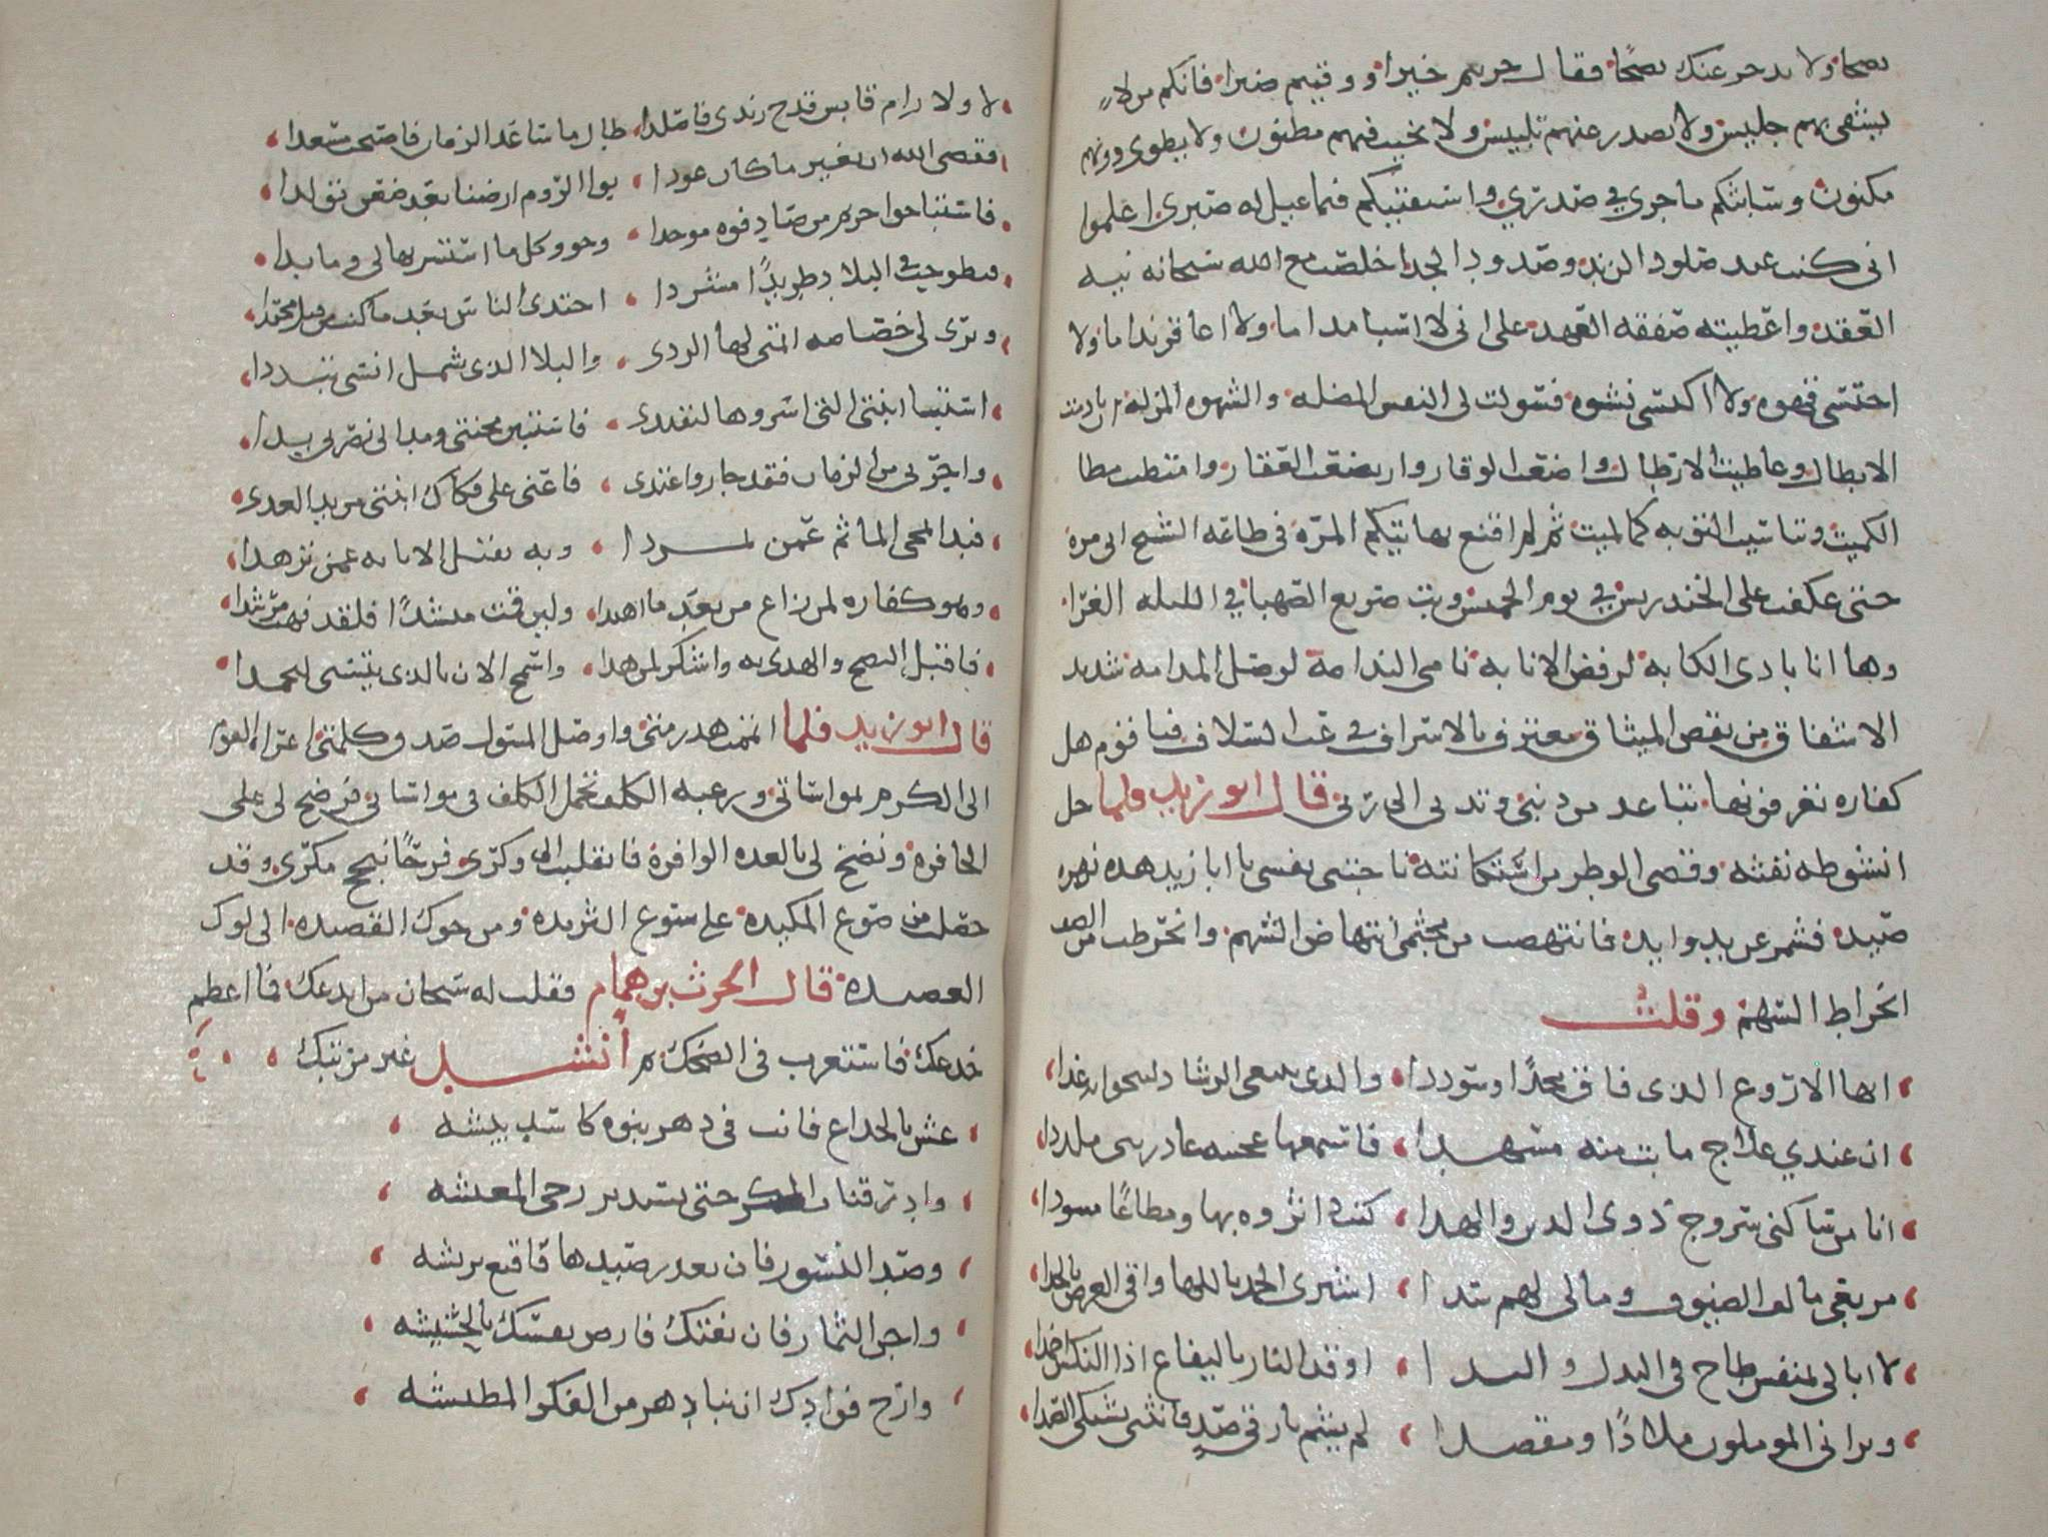 نصحا ولا يدخر عنك نصحا فقال جزيتم خيرا ووقيتم ضيرا فانكم من لا
يشقى بهم جليس ولا يصدر عنهم تلبيس ولا يخيب فيهم مظنون ولا يطوى دونهم
مكنون وسابثكم ما جرى في صدري واستفتيكم فيما عيل له صبري اعلموا
اني كنت عند صلود الزند وصدود الجد اخلصت مع الله سبحانه نية
العقد واعطيته صفقة العهد على اني لا اسبا مداما ولا اعاقر ندامى ولا
احتسى قهوة ولا اكتسى نشوة فسولت لى النفس المضله والشهوه المزله ان نادمت
الابطال وعاطيت الارطال واضعت الوقار وارتضعت العقار وامتطيت مطا
الكميت وتناسيت التوبه كما لميت ثم لم اقنع بهاتيكم المرة في طاعة الشيخ ابى مرة
حتى عكفت على الخندريس في يوم الخميس وبت صريع الصهبا في الليله الغرا
وها انا بادى الكابة لرفض الانابة نامى الندامة لوصل المدامه شديد
الاشفاق من نقض الميثاق معترف بالاسراف في عب السلاف فيا قوم هل
كفاره تعرفونها تباعد من ذنبي وتدنى الى ربي قال ابو زيد فلما حل
انشوطه نفثه وقضى الوطر من اشتكا بثه ناجتنى نفسى يا ابا زيد هذه نهزه
صيد فشمر عن يد وايد فانتهضت من مجثمى انتهاض الشهم وانخرطت من الصف
انخراط السهم وقلت
ايها الاروع الذى فاق مجدا وسوددا والذى يبتغى الرشاد لينجو به غدا
ان عندي علاج ما بت منه مسهدا فاستمعها عجيبه غادرتنى ملددا
انا من ساكنى سروج ذوى الدين والهدا كنت ذا ثروه بها ومطاعا مسودا
مربعى مالف الضيوف ومالى لهم سدا اشترى الحمد باللها واقى العرض بالجدا
لا ابالى بمنفس طاح في البذل والندا اوقد النار باليفاع اذا النكس اخمدا
ويرانى الموملون ملاذا ومقصدا لم يشم بارقى صد فانثنى يشتكى الصدا
لا ولا رام قابس قدح زندى فاصلدا طال ما ساعد الزمان فاصبحت مسعدا
فقضى الله ان يغير ما كان عودا بوا الروم ارضنا بعد ضغن تولدا
فاستباحوا حريم من صادفوه موحدا وحووا كل ما استسر بها لى وما بدا
فتطوحت في البلاد طريدا مشردا اجتدى الناس بعد ما كنت من قبل مجتدا
وترى لى خصاصه اتمنى لها الردى والبلا الذى به شمل انسى تبددا
استبا ابنتى التى اسروها لتفتدى فاستبن محنتى ومد الى نصرتى يدا
واجرنى من الزمان فقد جار واعتدى واعنى على فكاك ابنتى من يد العدى
فبذا تمحى الماثم عمن تمردا وبه تقبل الانابه ممن تزهدا
وهو كفاره لمن زاغ من بعد ما اهتدا ولين قمت منشدا فلقد فهت مرشدا
فاقبل النصح والهدى به واشكر لمن هدا واسمح الان بالذى يتسنى لتحمدا
قال ابو زيد فلما اتممت هذرمتى واوهم المسول صدق كلمتى اغراه القرم
الى الكرم بمواساتى ورغبه الكلف بحمل الكلف في مواساتى فرضخ لى على
الحافرة ونضخ لى بالعده الوافرة فانقلبت الى وكرى فرحا بنجح مكرى وقد
حصلت من صوغ المكيدة على سوغ الثريده ومن حوك القصيده الى لوك
العصيدة قال الحرث بن همام فقلت له سبحان من ابدعك فما اعظم
خدعك فاستغرب في الضحك ثم أنشد غير مرتبك
عش بالخداع فانت في دهر بنوه كاسد بيشه
وادر قناة المكر حتى تستدير رحى المعيشه
وصد النسور فان تعذر صيدها فاقنع بريشه
واجن الثمار فان تفتك فارض نفسك بالحشيشه
وارح فوادك ان نبا دهر من الفكر المطيشه